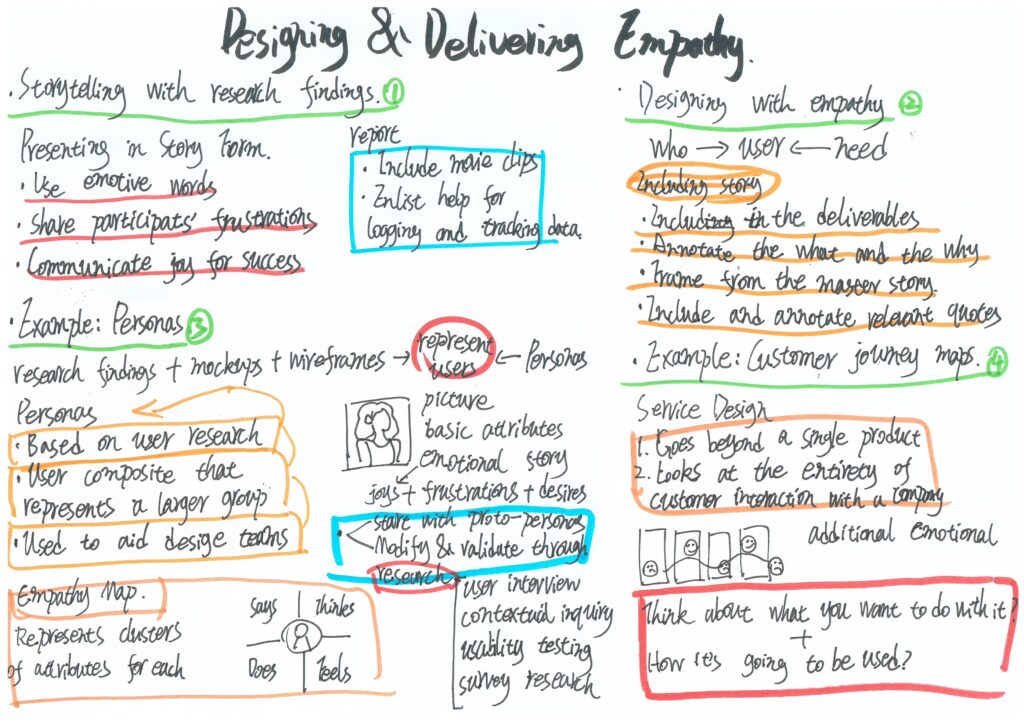 Designing & Delivering Empathy.
· Storytelling with research findings. 1
Presenting in Story Form.
· Use emotive words
· Share participats' frustrations
· Communicate joy for success
report
· Include movie clips
· Enlist help for
logging and tracking data.
· Designing with empathy 2
Who → user ← need
Including story
· Including in the deliverables
· Annotate the what and the why
· Frame from the master story.
· Include and annotate relevant quotes
· Example: Personas 3
research findings + mockups + wireframes → represent users ← Personas
Personas
· Based on user research
· User composite that
represents a larger group
· Used to aid desige teams
picture
basic attributes
emotional story
joys + frustrations + desires
· start with proto-personas
Modify & validate through
research
user interview
contextual inquiry
usability testing
survey research
Empathy Map.
Represents clusters
of attributes for each
Says Thinks
Does Feels
· Example: Customer journey maps. 4
Service Design
1. Goes beyond a single product
2. Looks at the entirety of
customer interaction with a company
additional emotional
Think about what you want to do with it?
+
How it's going to be used?